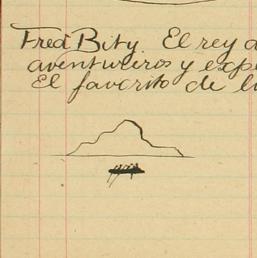 Fred Bity. El rey d
aventureros y exp
El favorito de l